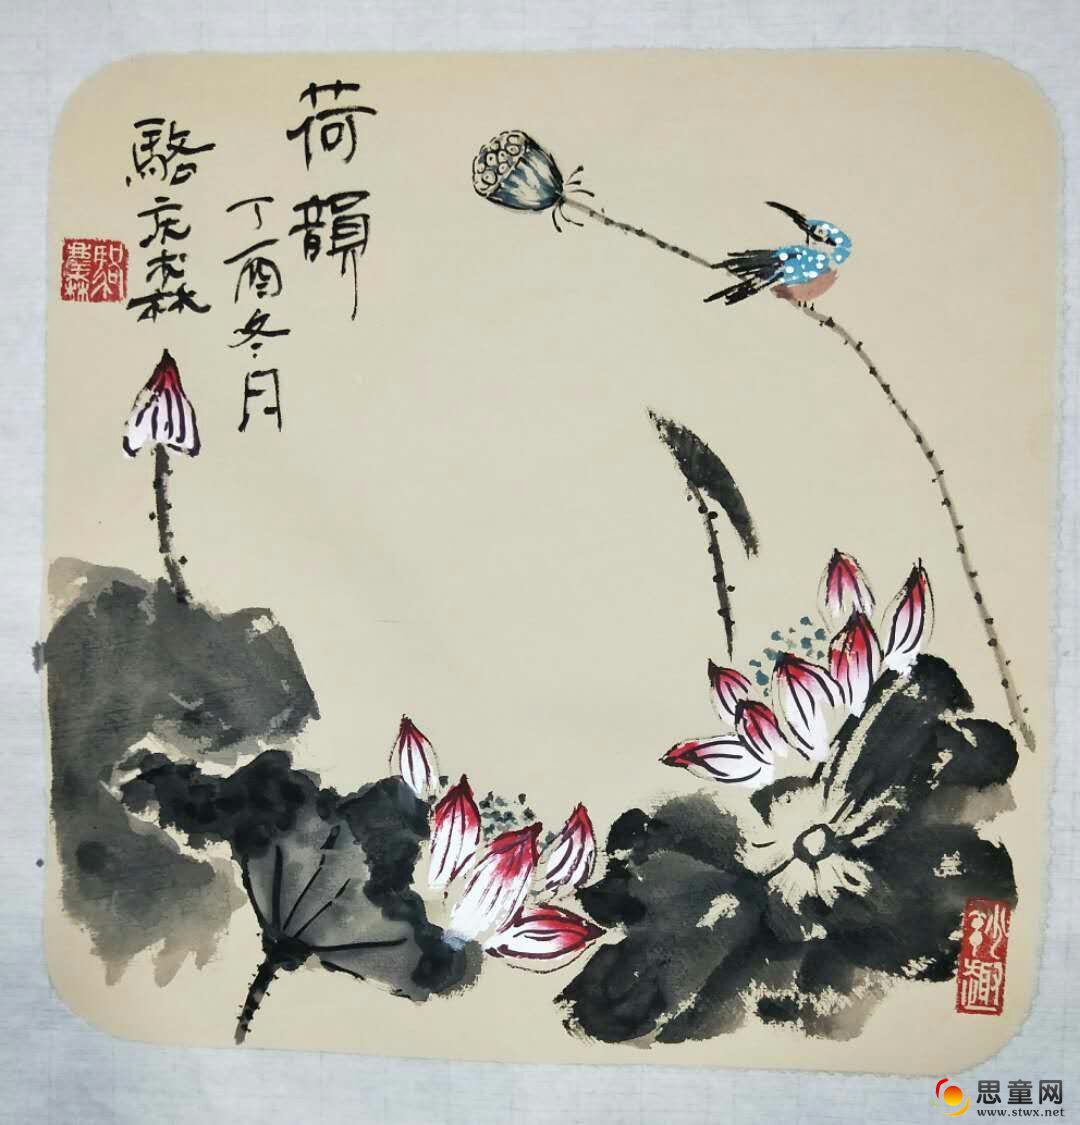 荷韻
丁酉冬月
駱庆森
妙趣
思童网
www.stwx.net